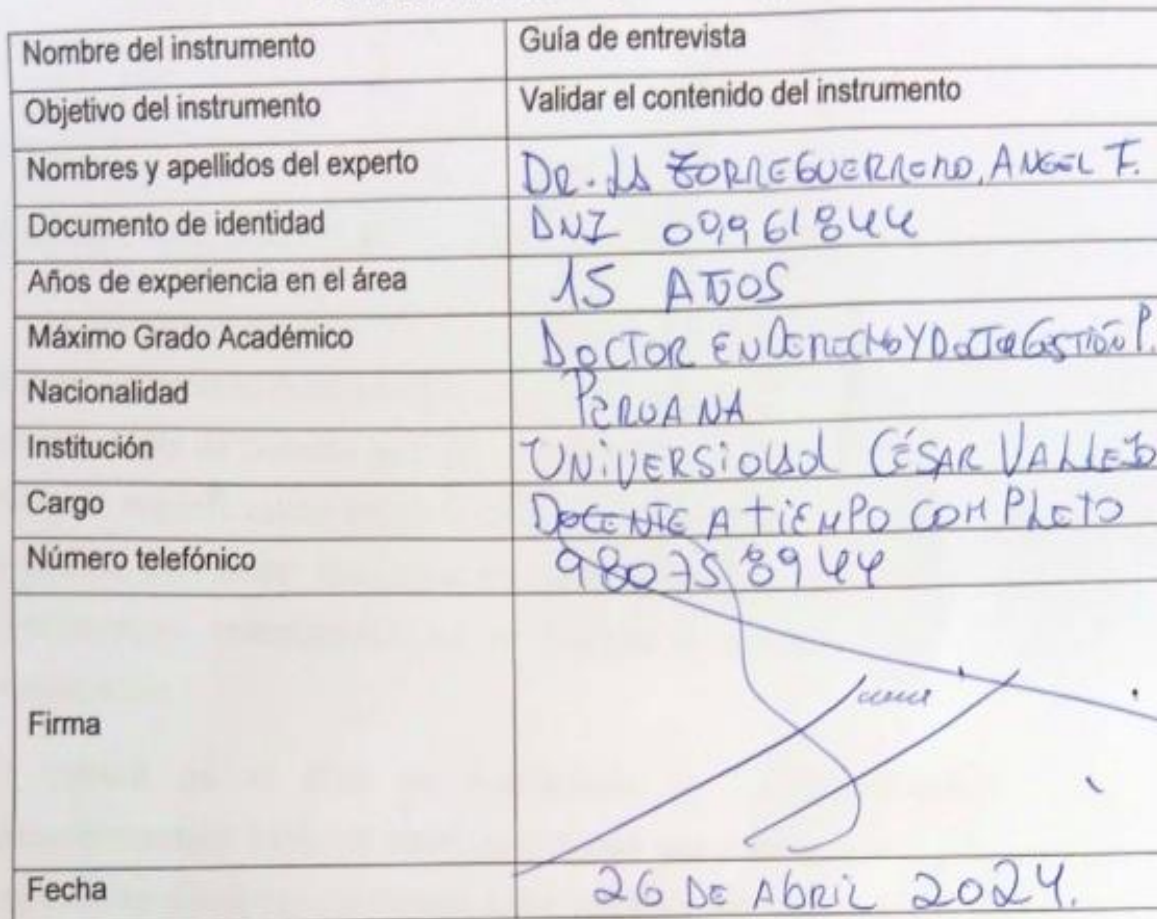 Nombre del instrumento Guía de entrevista
Objetivo del instrumento Validar el contenido del instrumento
Nombres y apellidos del experto DR. LA TORRE GUERRERO, ANGEL F.
Documento de identidad DNI 09961844
Años de experiencia en el área 15 AÑOS
Máximo Grado Académico DOCTOR EN DERECHO Y DOCTOR GESTIÓN P.
Nacionalidad PERUANA
Institución UNIVERSIDAD CÉSAR VALLEJO
Cargo DOCENTE A TIEMPO COMPLETO
Número telefónico 980758944
Firma
Fecha 26 DE ABRIL 2024.